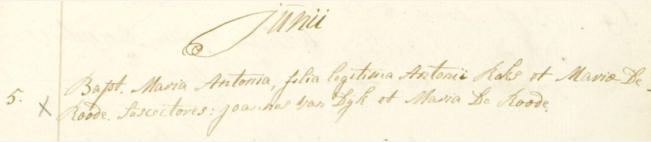 Junii
5. X Bapt. Maria Antonia, filia legitima Antonii Roks et Mariæ De
Roode. Suscectores: Joannes Van Dyk et Maria De Roode.